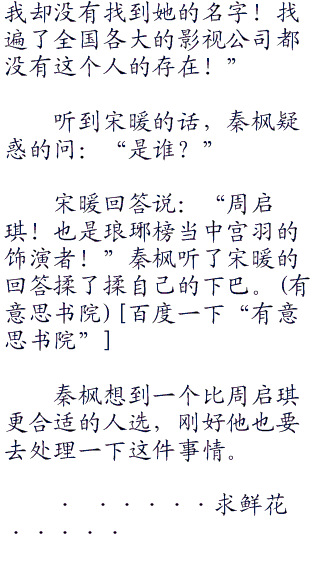 我却没有找到她的名字！找
遍了全国各大的影视公司都
没有这个人的存在！”
听到宋暖的话，秦枫疑
惑的问：“是谁？”
宋暖回答说：“周启
琪！也是琅琊榜当中宫羽的
饰演者！”秦枫听了宋暖的
回答揉了揉自己的下巴。(有
意思书院) [百度一下“有意
思书院” ]
秦枫想到一个比周启琪
更合适的人选，刚好他也要
去处理一下这件事情。
· · · · · ·求鲜花
· · · · ·